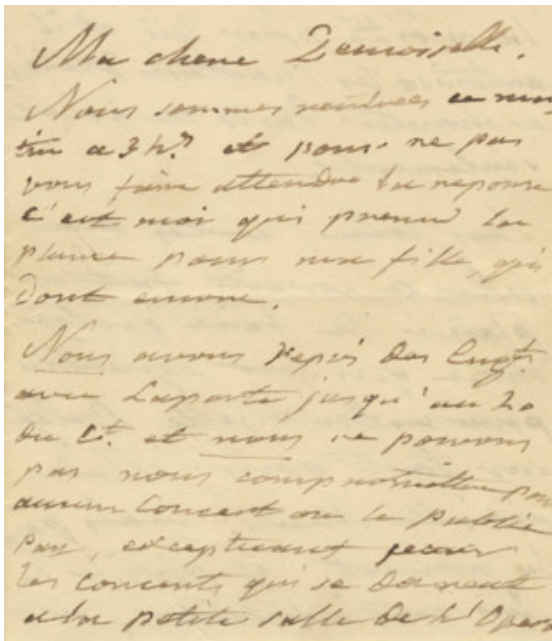 Ma chere Demoiselle.
Nous sommes rentrées ce ma
tin a 3 h.s et pour ne pas
vous faire attendre la reponse
c'est moi qui prend la
plume pour ma fille, qui
dort encore.
Nous avons des Engts.
avec Laporte jusqu'au 20
du Ct. et nous ne pouvons
pas nous compromettre par
aucun Concert ou le publie
pay, exceptuant
les concerts qui se donnent
a la petite salle de l'Opera